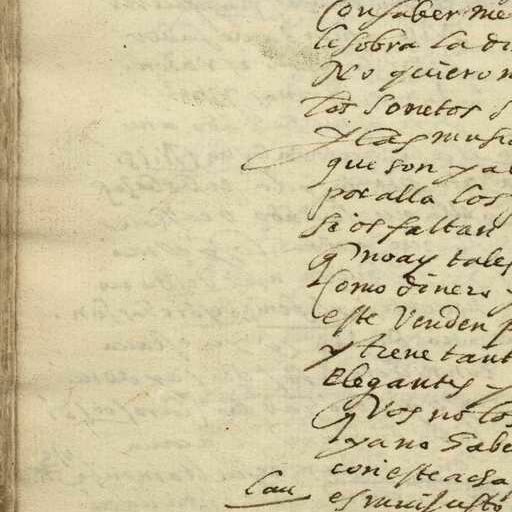 Con saber me
le sobra la di
No quiero m
los sonetos s
y las music
que son ya a
por alla los
si os faltan
q no ay tales
Como dinero y
este venden p
y tiene tant
elegantes y
q Vos no los
ya no sabe
con este acha
Cau es mui justo